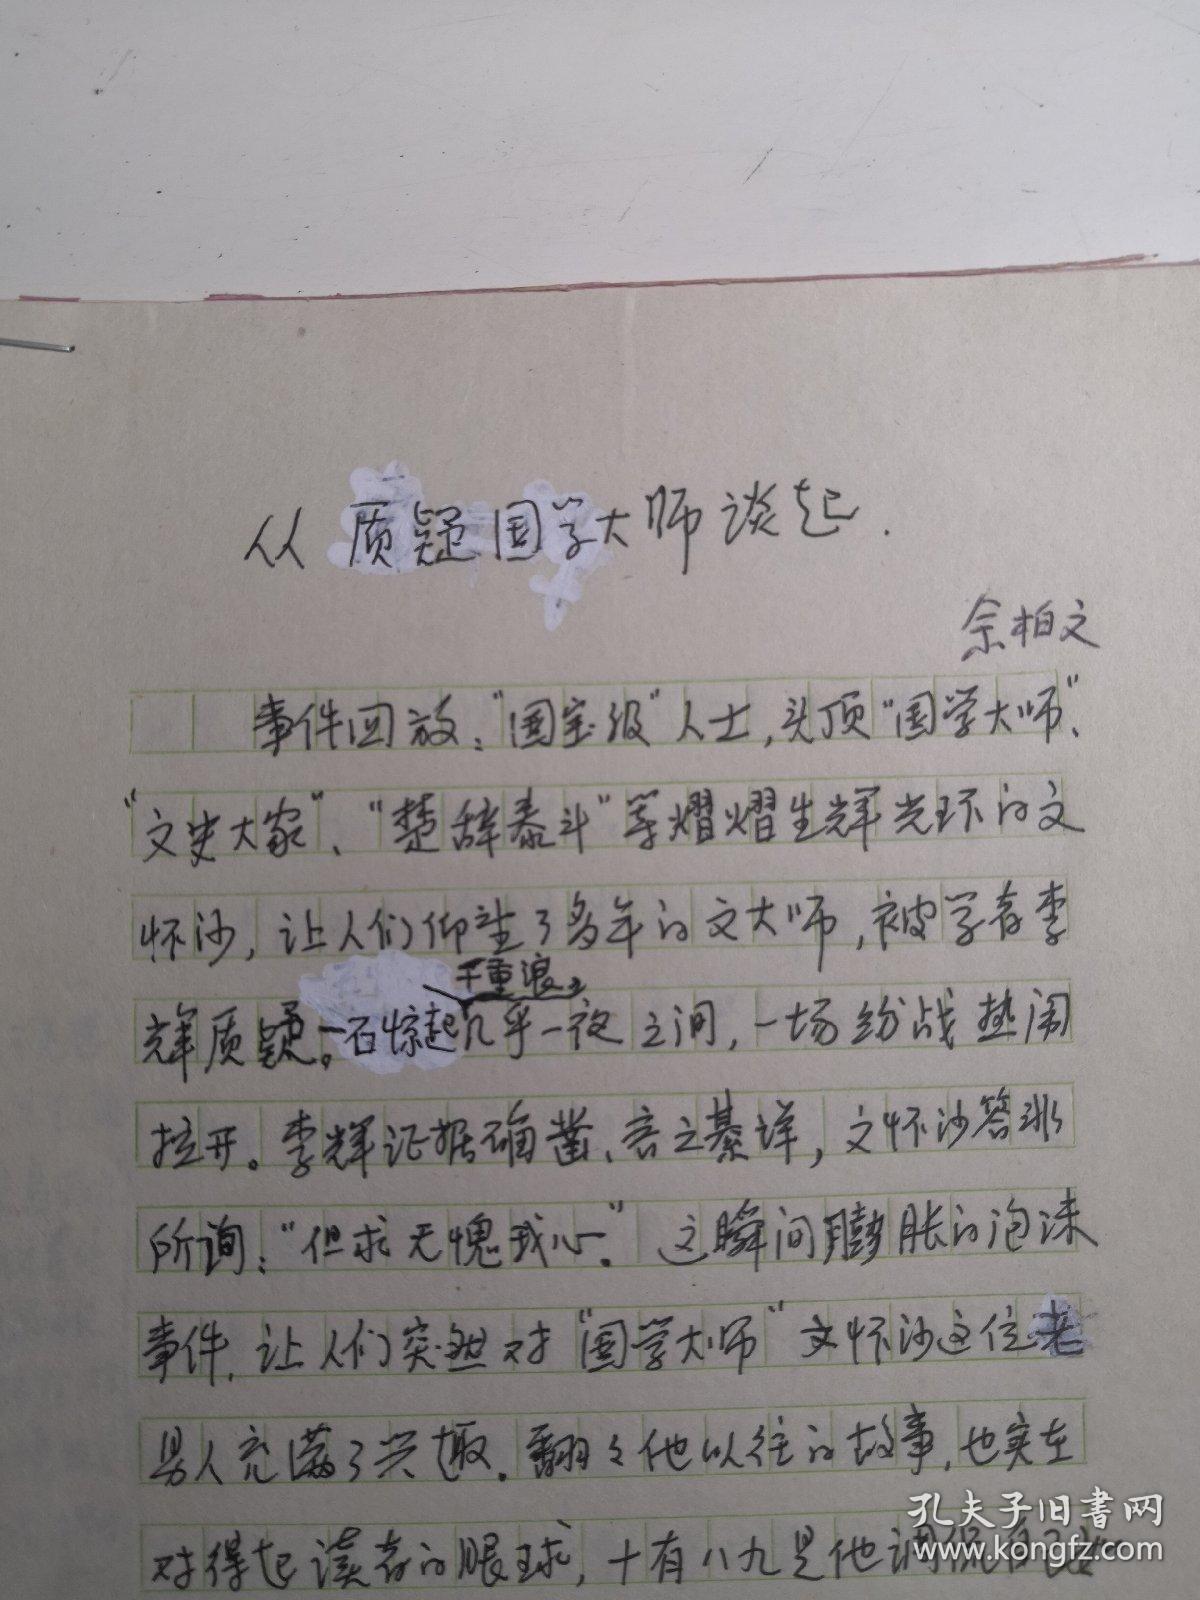 从质疑国学大师谈起.
佘柏文
事件回放："国宝级"人士,头顶"国学大师"、
"文史大家"、"楚辞泰斗"等熠熠生辉光环的文
怀沙,让人们仰望了多年的文大师,被学者李
千重浪。
辉质疑。一石惊起几乎一夜之间,一场纷战热闹
拉开。李辉证据确凿、言之綦详,文怀沙答非
所询："但求无愧我心."这瞬间膨胀的泡沫
事件,让人们突然对"国学大师"文怀沙这位老
男人充满了兴趣.翻々他以往的故事,也实在
对得起读者的眼球,十有八九是他调侃自己
孔夫子旧书网
www.kongfz.com